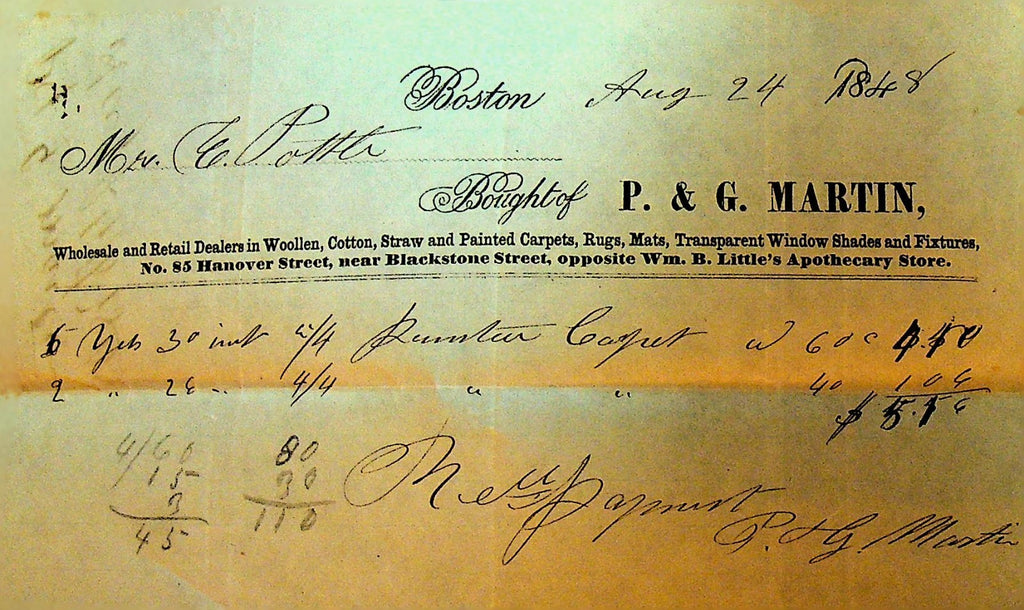 Boston Aug 24 1848
Mr. E. Pottle
Bought of P. & G. MARTIN,
Wholesale and Retail Dealers in Woollen, Cotton, Straw and Painted Carpets, Rugs, Mats, Transparent Window Shades and Fixtures,
No. 85 Hanover Street, near Blackstone Street, opposite Wm. B. Little's Apothecary Store.
Yds 30 4/4 Carpet 60c
2 " 4/4 " " 40 106
$ 5.16
4/60 80
15 30
3 110
45
Recd Payment
P. & G. Martin